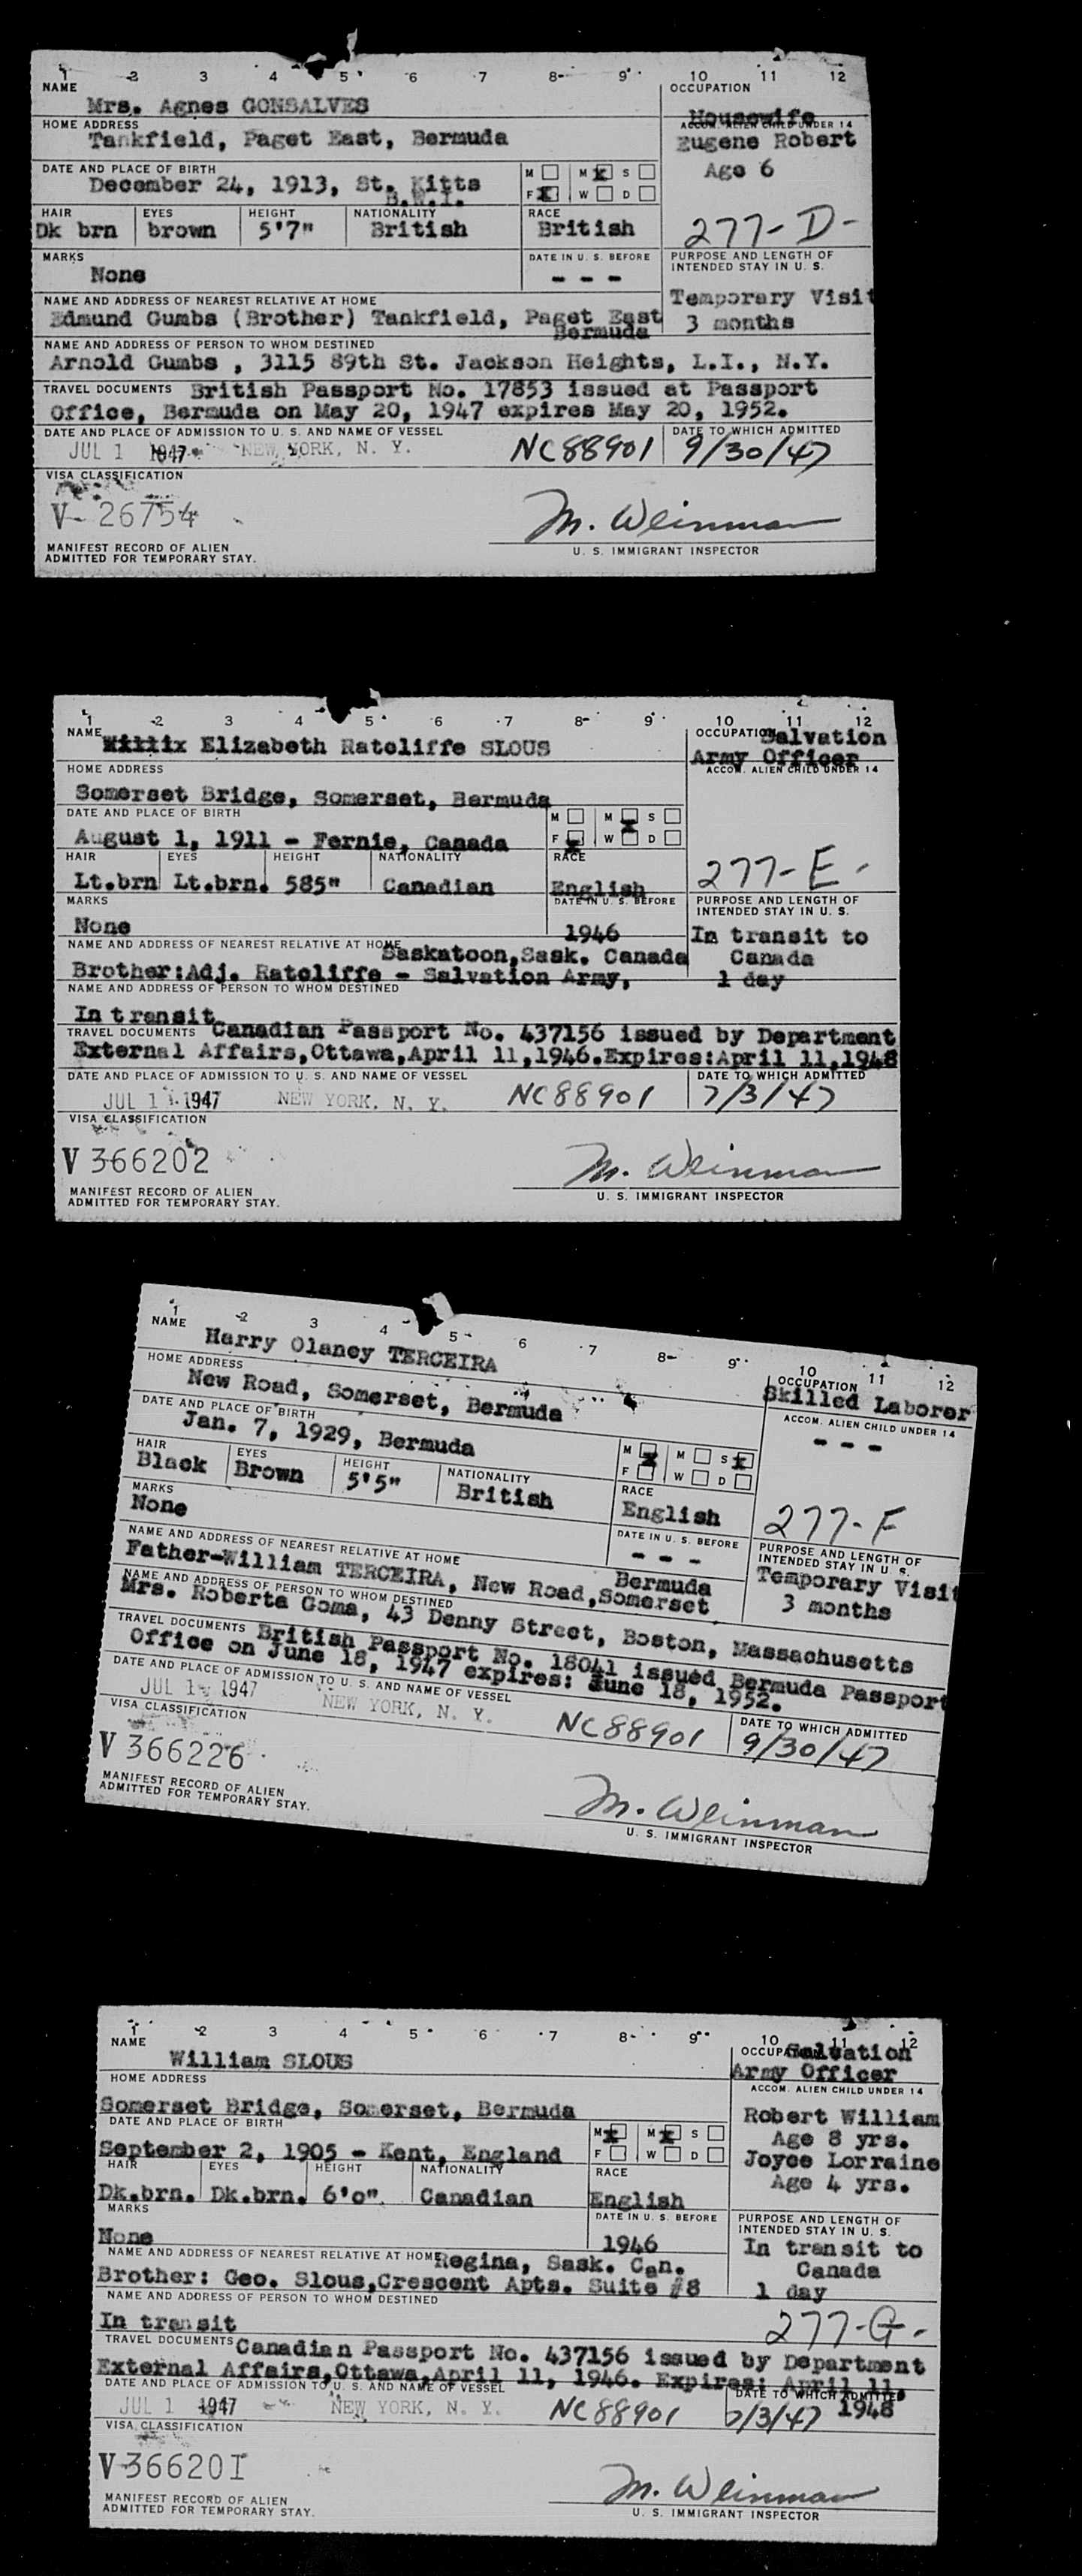 1 2 3 4 5 6 7 8 9 10 11 12
NAME OCCUPATION
Mrs. Agnes GONSALVES Housewife
HOME ADDRESS ACCOM. ALIEN CHILD UNDER 14
Tankfield, Paget East, Bermuda Eugene Robert
DATE AND PLACE OF BIRTH M M X S Age 6
December 24, 1913, St. Kitts F X W D
B.W.I.
HAIR EYES HEIGHT NATIONALITY RACE
Dk brn brown 5'7" British British 277-D-
MARKS DATE IN U. S. BEFORE PURPOSE AND LENGTH OF
INTENDED STAY IN U. S.
None - - -
NAME AND ADDRESS OF NEAREST RELATIVE AT HOME Temporary Visit
Edmund Gumbs (Brother) Tankfield, Paget East 3 months
Bermuda
NAME AND ADDRESS OF PERSON TO WHOM DESTINED
Arnold Gumbs , 3115 89th St. Jackson Heights, L.I., N.Y.
TRAVEL DOCUMENTS British Passport No. 17853 issued at Passport
Office, Bermuda on May 20, 1947 expires May 20, 1952.
DATE AND PLACE OF ADMISSION TO U. S. AND NAME OF VESSEL DATE TO WHICH ADMITTED
JUL 1 1947 NEW YORK, N. Y. NC88901 9/30/47
VISA CLASSIFICATION
V- 26754
M. Weinman
MANIFEST RECORD OF ALIEN
ADMITTED FOR TEMPORARY STAY.
U. S. IMMIGRANT INSPECTOR
1 2 3 4 5 6 7 8 9 10 11 12
NAME OCCUPATION Salvation
Elizabeth Ratcliffe SLOUS Army Officer
HOME ADDRESS ACCOM. ALIEN CHILD UNDER 14
Somerset Bridge, Somerset, Bermuda
DATE AND PLACE OF BIRTH M M X S
August 1, 1911 - Fernie, Canada F X W D
HAIR EYES HEIGHT NATIONALITY RACE
Lt.brn Lt.brn. 585" Canadian English 277-E-
MARKS DATE IN U. S. BEFORE PURPOSE AND LENGTH OF
INTENDED STAY IN U. S.
None 1946 In transit to
NAME AND ADDRESS OF NEAREST RELATIVE AT HOME Saskatoon,Sask. Canada Canada
Brother:Adj. Ratcliffe - Salvation Army, 1 day
NAME AND ADDRESS OF PERSON TO WHOM DESTINED
In transit
TRAVEL DOCUMENTS Canadian Passport No. 437156 issued by Department
External Affairs,Ottawa,April 11,1946.Expires:April 11,1948
DATE AND PLACE OF ADMISSION TO U. S. AND NAME OF VESSEL DATE TO WHICH ADMITTED
JUL 1 1947 NEW YORK, N. Y. NC88901 7/3/47
VISA CLASSIFICATION
V 366202
M. Weinman
MANIFEST RECORD OF ALIEN
ADMITTED FOR TEMPORARY STAY.
U. S. IMMIGRANT INSPECTOR
1 2 3 4 5 6 7 8 9 10 11 12
NAME OCCUPATION
Harry Olaney TERCEIRA Skilled Laborer
HOME ADDRESS ACCOM. ALIEN CHILD UNDER 14
New Road, Somerset, Bermuda - - -
DATE AND PLACE OF BIRTH M X M S X
Jan. 7, 1929, Bermuda F W D
HAIR EYES HEIGHT NATIONALITY RACE
Black Brown 5'5" British English 277-F
MARKS DATE IN U. S. BEFORE PURPOSE AND LENGTH OF
INTENDED STAY IN U. S.
None - - - Temporary Visit
NAME AND ADDRESS OF NEAREST RELATIVE AT HOME Bermuda 3 months
Father-William TERCEIRA, New Road,Somerset
NAME AND ADDRESS OF PERSON TO WHOM DESTINED
Mrs. Roberta Goma, 43 Denny Street, Boston, Massachusetts
TRAVEL DOCUMENTS British Passport No. 18041 issued Bermuda Passport
Office on June 18, 1947 expires: June 18, 1952.
DATE AND PLACE OF ADMISSION TO U. S. AND NAME OF VESSEL DATE TO WHICH ADMITTED
JUL 1 1947 NEW YORK, N. Y. NC88901 9/30/47
VISA CLASSIFICATION
V 366226
M. Weinman
MANIFEST RECORD OF ALIEN
ADMITTED FOR TEMPORARY STAY.
U. S. IMMIGRANT INSPECTOR
1 2 3 4 5 6 7 8 9 10 11 12
NAME OCCUPATION Salvation
William SLOUS Army Officer
HOME ADDRESS ACCOM. ALIEN CHILD UNDER 14
Somerset Bridge, Somerset, Bermuda Robert William
DATE AND PLACE OF BIRTH M X M X S Age 8 yrs.
September 2, 1905 - Kent, England F W D Joyce Lorraine
HAIR EYES HEIGHT NATIONALITY RACE Age 4 yrs.
Dk.brn. Dk.brn. 6'0" Canadian English
MARKS DATE IN U. S. BEFORE PURPOSE AND LENGTH OF
INTENDED STAY IN U. S.
None 1946 In transit to
NAME AND ADDRESS OF NEAREST RELATIVE AT HOME Regina, Sask. Can. Canada
Brother: Geo. Slous,Crescent Apts. Suite #8 1 day
NAME AND ADDRESS OF PERSON TO WHOM DESTINED
In transit 277-G-
TRAVEL DOCUMENTS Canadian Passport No. 437156 issued by Department
External Affairs,Ottawa,April 11, 1946. Expires: April 11,
1948
DATE AND PLACE OF ADMISSION TO U. S. AND NAME OF VESSEL DATE TO WHICH ADMITTED
JUL 1 1947 NEW YORK, N. Y. NC88901 7/3/47
VISA CLASSIFICATION
V 366201
M. Weinman
MANIFEST RECORD OF ALIEN
ADMITTED FOR TEMPORARY STAY.
U. S. IMMIGRANT INSPECTOR